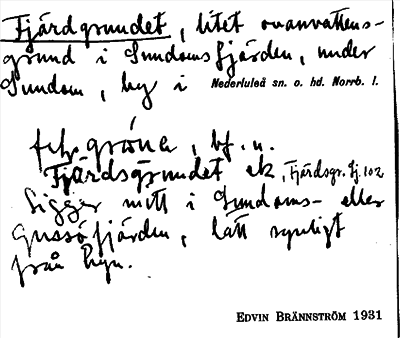 Fjärdgrundet, litet ovanvattens-
grund i Sundomsfjärden, under
Sundom, by i Nederluleå sn. o. hd. Norrb. l.
bf. n.
Fjärdsgrundet ek, Fjärdsgr. Gj. 102
Ligger mitt i Sundoms- eller
Gussöfjärden, lätt synligt
från byn.
EDVIN BRÄNNSTRÖM 1931